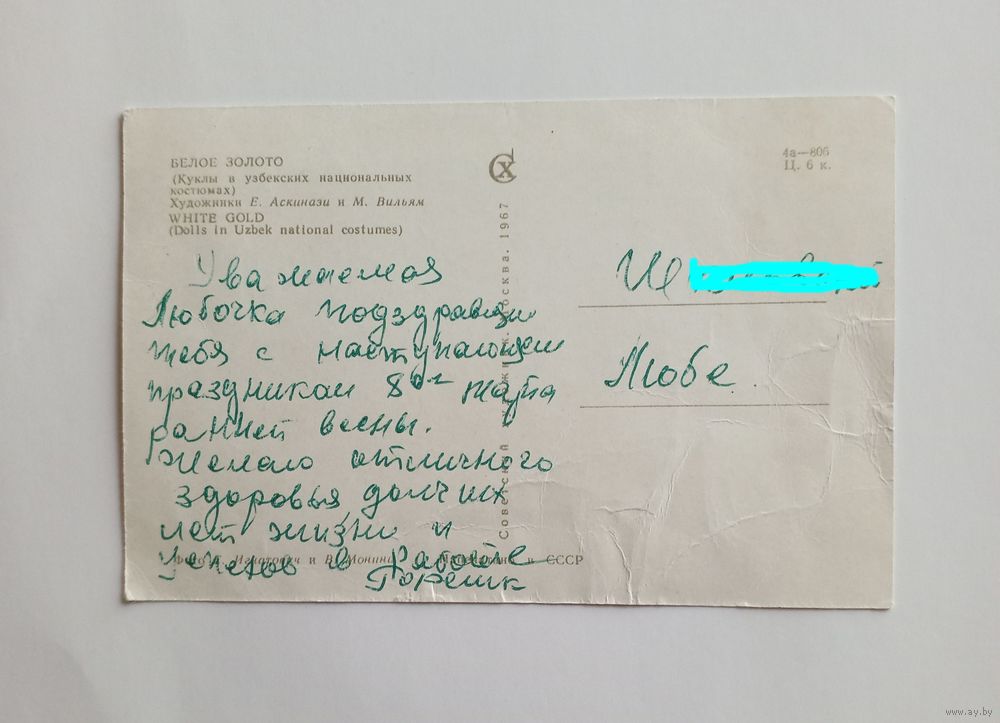 БЕЛОЕ ЗОЛОТО
(Куклы в узбекских национальных
костюмах)
Художники Е. Аскинази и М. Вильям
WHITE GOLD
(Dolls in Uzbek national costumes)
СХ
4а—806
Ц. 6 к.
Уважаемая
Любочка подздравляю
тебя с наступающем
праздником 8ое марта
ранней весны.
Желаю отличного
здоровья, долгих
лет жизни и
успехов в работе
Горелик
Фото Е. Игнатович и В. Монина Напечатано в СССР
Советский художник. Москва. 1967
Любе
www.ay.by